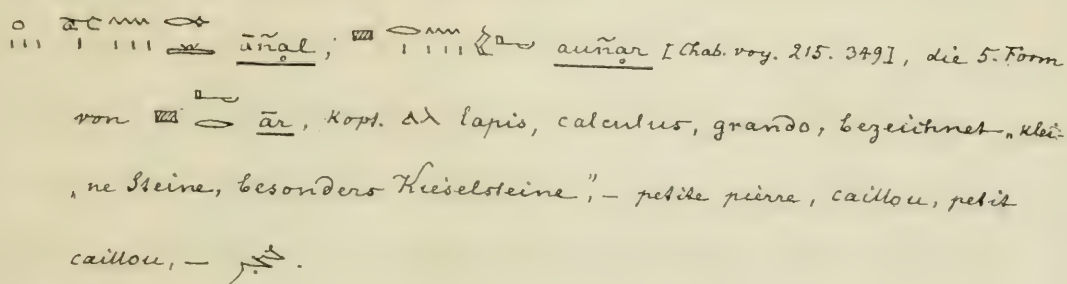 āñạl; auñạr [Chab. voy. 215. 349], die 5. Form
von ār, Kopt. ⲁⲗ lapis, calculus, grando, bezeichnet „klei-
„ne Steine, besonders Kieselsteine", – petite pierre, caillou, petit
caillou, –